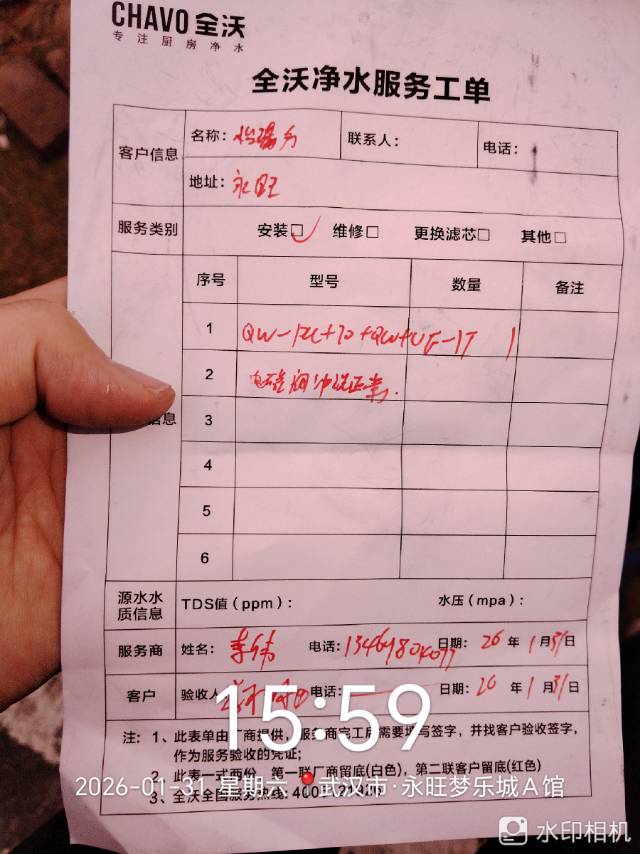 CHAVO 全沃
专注厨房净水
全沃净水服务工单
客户信息
名称：
联系人：
电话：
地址：永旺
服务类别
安装□ 维修□ 更换滤芯□ 其他□
序号 型号 数量 备注
1 1
2 电磁阀冲洗正常.
3
信息
4
5
6
源水水质信息
TDS值（ppm）：
水压（mpa）：
服务商
姓名：李伟
电话：
日期：26年1月31日
客户
验收人
电话：
日期：26年1月31日
注：1、此表单由厂商提供，服务商完工后需要填写签字，并找客户验收签字，
作为服务验收的凭证；
2、此表一式两份，第一联厂商留底(白色)，第二联客户留底(红色)
3、全沃全国服务热线：
15:59
2026-01-31 星期六 武汉市·永旺梦乐城A馆
水印相机